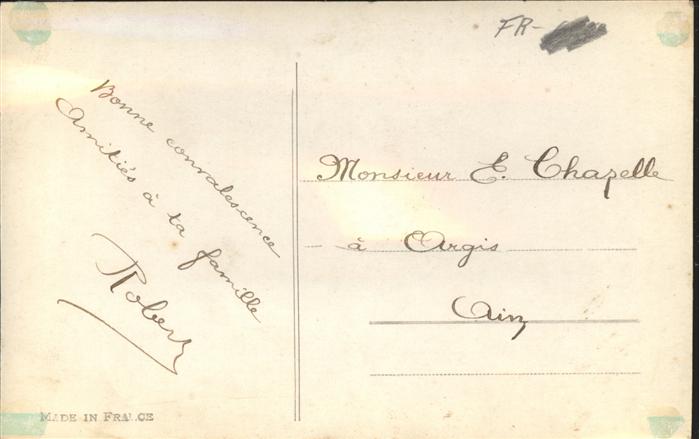 FR-
Bonne convalescence
Amitiés à ta famille
Robert
Monsieur E. Chapelle
à Argis
Ain
MADE IN FRANCE